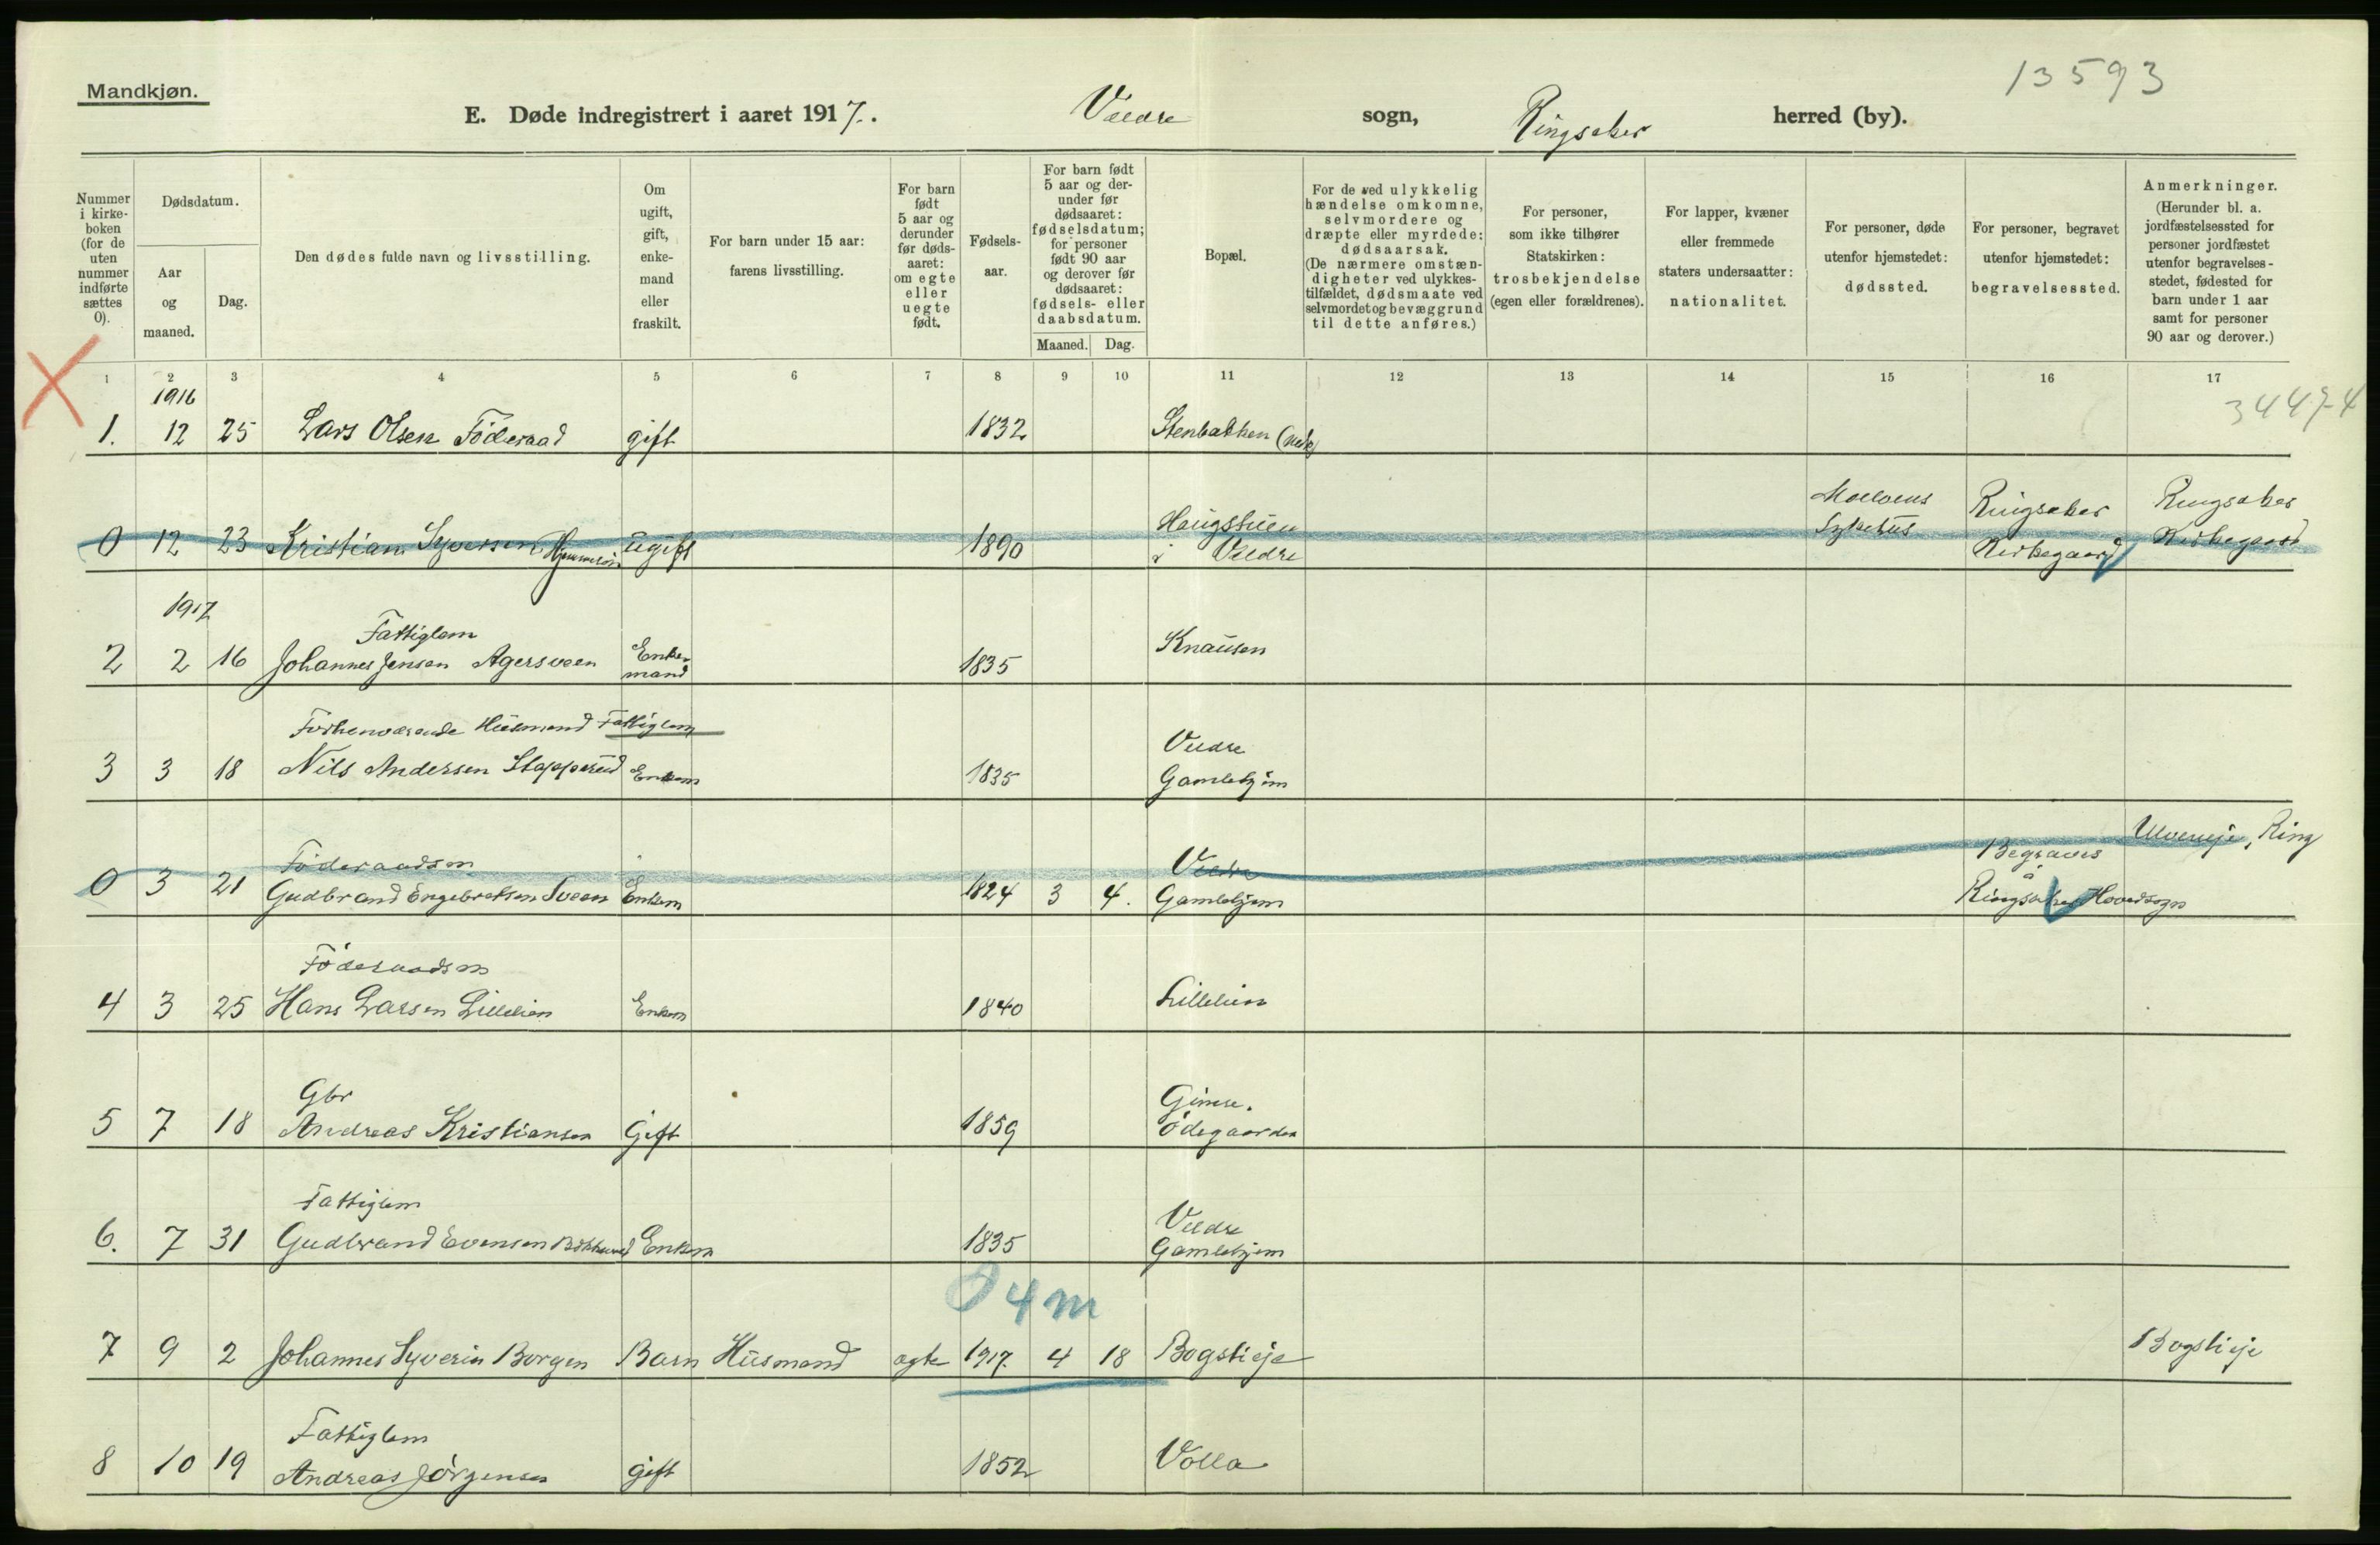 13593
Mandkjøn.
E. Døde indregistrert i aaret 1917. Veldre sogn, Ringsaker herred (by).
Nummer i kirke-boken (for de uten nummer indførte sættes 0).
Dødsdatum.
Aar og maaned.
Dag.
Den dødes fulde navn og livsstilling.
Om ugift, gift, enke-mand eller fraskilt.
For barn under 15 aar: farens livsstilling.
For barn født 5 aar og derunder før døds-aaret: om egte eller uegte født.
Fødsels-aar.
For barn født 5 aar og der-under før dødsaaret: fødselsdatum; for personer født 90 aar og derover før dødsaaret: fødsels- eller daabsdatum.
Maaned. Dag.
Bopæl.
For de ved ulykkelig hændelse omkomne, selvmordere og dræpte eller myrdede: dødsaarsak. (De nærmere omstæn-digheter ved ulykkes-tilfældet, dødsmaate ved selvmordet og bevæggrund til dette anføres.)
For personer, som ikke tilhører Statskirken: trosbekjendelse (egen eller forældrenes).
For lapper, kvæner eller fremmede staters undersaatter: nationalitet.
For personer, døde utenfor hjemstedet: dødssted.
For personer, begravet utenfor hjemstedet: begravelsessted.
Anmerkninger. (Herunder bl. a. jordfæstelsessted for personer jordfæstet utenfor begravelses-stedet, fødested for barn under 1 aar samt for personer 90 aar og derover.)
1 2 3 4 5 6 7 8 9 10 11 12 13 14 15 16 17
34474
1916
1. 12 25 Lars Olsen Föderaad gift 1832 Stenbakken
Haugstuen Moelvens Ringsaker Ringsaker
0 12 23 Kristian Syversen ugift 1890 i Veldre Sykehus Kirkegaard Kirkegaard
1917
Fattiglem
2 2 16 Johannes Jensen Agersveen Enkemand 1835 Knausen
Forhenværende Husmand Fattiglem Veldre
3 3 18 Nils Andersen Stapperud Enkem 1835 Gamlehjem
Föderaadsm Veldre Begraves Ulveneje, Ring
0 3 21 Gudbrand Engebretsen Sveen Enkem 1824 3 4. Gamlehjem Ringsaker Hovedsogn
Föderaadsm
4 3 25 Hans Larsen Lillelien Enkem 1840 Lillelien
Gbr
5 7 18 Andreas Kristiansen Gift 1859 Ödegaarden
Fattiglem Veldre
6. 7 31 Gudbrand Evensen Enkem 1835 Gamlehjem
0 4 m
7 9 2 Johannes Syverin Borgen Barn Husmand ægte 1917 4 18 Bogstieje Bogstieje
Fattiglem
8 10 19 Andreas Jörgensen gift 1852 Volla